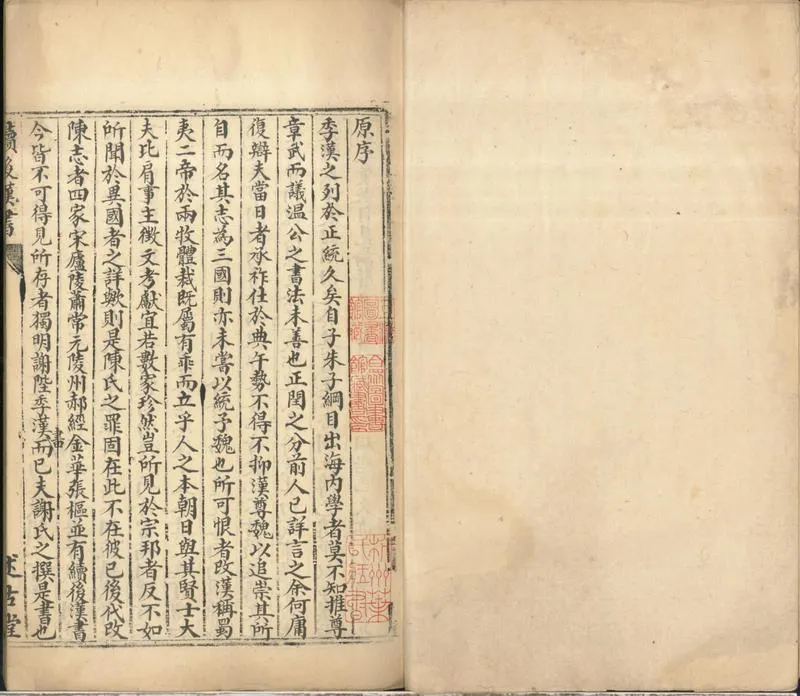 原序
季漢之列於正統久矣自子朱子綱目出海內學者莫不知推尊
章武而議溫公之書法未善也正閏之分前人已詳言之余何庸
復辯夫當日者承祚仕於典午勢不得不抑漢尊魏以追崇其所
自而名其志為三國則亦未嘗以統予魏也所可恨者改漢稱蜀
夷二帝於兩牧體裁既屬有乖而立乎人之本朝日與其賢士大
夫比肩事主徵文考獻宜若數家珍然豈所見於宗邦者反不如
所聞於異國者之詳歟則是陳氏之罪固在此不在彼已後代改
陳志者四家宋廬陵蕭常元陵州郝經金華張樞並有續後漢書
今皆不可得見所存者獨明謝陛季漢書而已夫謝氏之撰是書也
續後漢書
述古堂